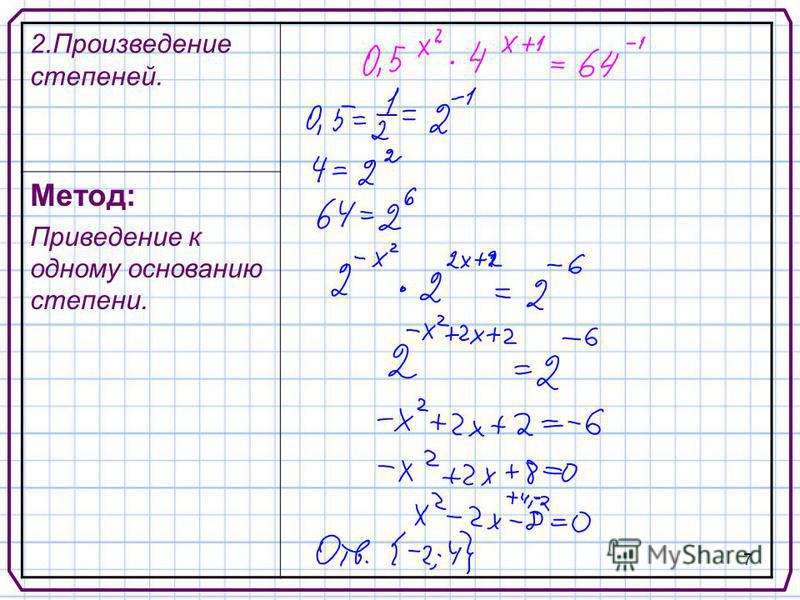 2.Произведение
степеней.
Метод:
Приведение к
одному основанию
степени.
0,5^{x^2} · 4^{x+1} = 64^{-1}
0,5 = 1/2 = 2^{-1}
4 = 2^2
64 = 2^6
2^{-x^2} · 2^{2x+2} = 2^{-6}
2^{-x^2+2x+2} = 2^{-6}
-x^2+2x+2=-6
-x^2+2x+8=0
+4,-2
x^2-2x-8=0
Отв. {-2;4}
MyShared
7